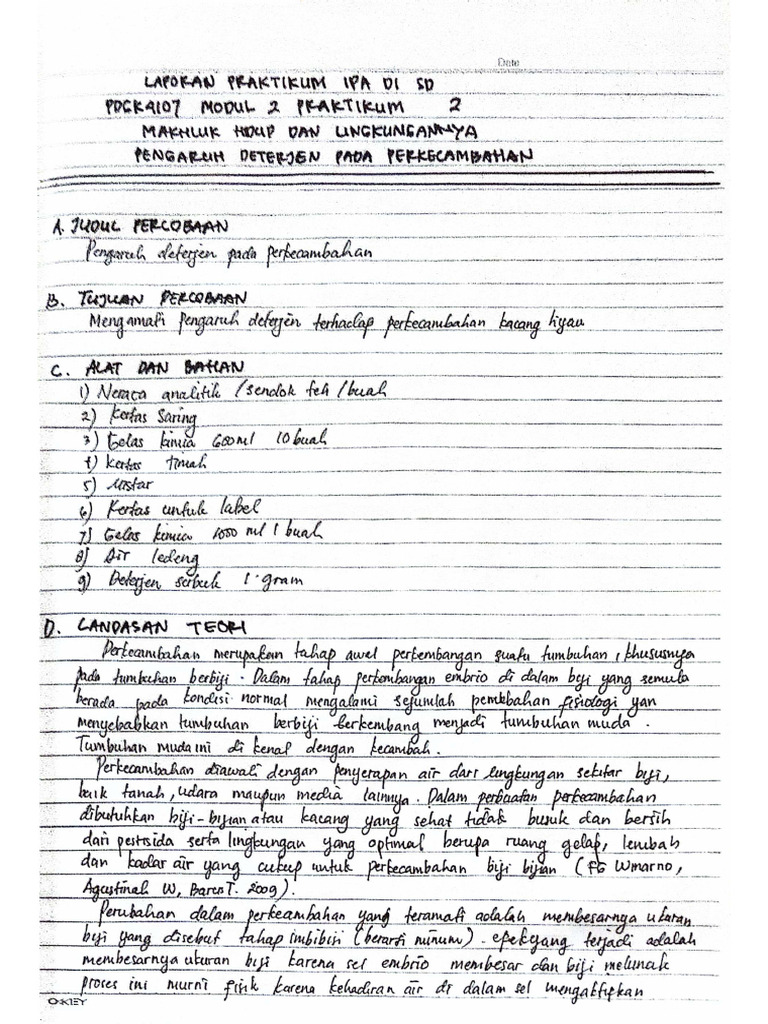 Date
LAPORAN PRAKTIKUM IPA DI SD
PDGK4107 MODUL 2 PRAKTIKUM 2
MAKHLUK HIDUP DAN LINGKUNGANNYA
PENGARUH DETERJEN PADA PERKECAMBAHAN
A. JUDUL PERCOBAAN
Pengaruh deterjen pada perkecambahan
B. TUJUAN PERCOBAAN
Mengamati pengaruh deterjen terhadap perkecambahan kacang hijau
C. ALAT DAN BAHAN
1) Neraca analitik / sendok teh 1 buah
2) Kertas saring
3) Gelas kimia 600 ml 10 buah
4) Kertas timah
5) Mistar
6) Kertas untuk label
7) Gelas kimia 1000 ml 1 buah
8) Air ledeng
9) Deterjen serbuk 1 gram
D. LANDASAN TEORI
Perkecambahan merupakan tahap awal perkembangan suatu tumbuhan, khususnya
pada tumbuhan berbiji. Dalam tahap perkembangan embrio di dalam biji yang semula
berada pada kondisi normal mengalami sejumlah fisiologi yan
menyebabkan tumbuhan berbiji berkembang menjadi tumbuhan muda.
Tumbuhan muda ini di kenal dengan kecambah.
Perkecambahan diawali dengan penyerapan air dari lingkungan sekitar biji,
baik tanah, udara maupun media lainnya. Dalam perbuatan perkecambahan
dibutuhkan biji-bijian atau kacang yang sehat tidak busuk dan bersih
dari pestisida serta lingkungan yang optimal berupa ruang gelap, lembab
dan kadar air yang cukup untuk perkecambahan biji bijian (FG Winarno,
Agustinah W, Barce T. 2009).
Perubahan dalam perkecambahan yang teramati adalah membesarnya ukuran
biji yang disebut tahap imbibisi (berarti minum). efek yang terjadi adalah
membesarnya ukuran biji karena sel embrio membesar dan biji melunak
proses ini murni fisik karena kehadiran air di dalam sel mengaktifkan
O-KEY